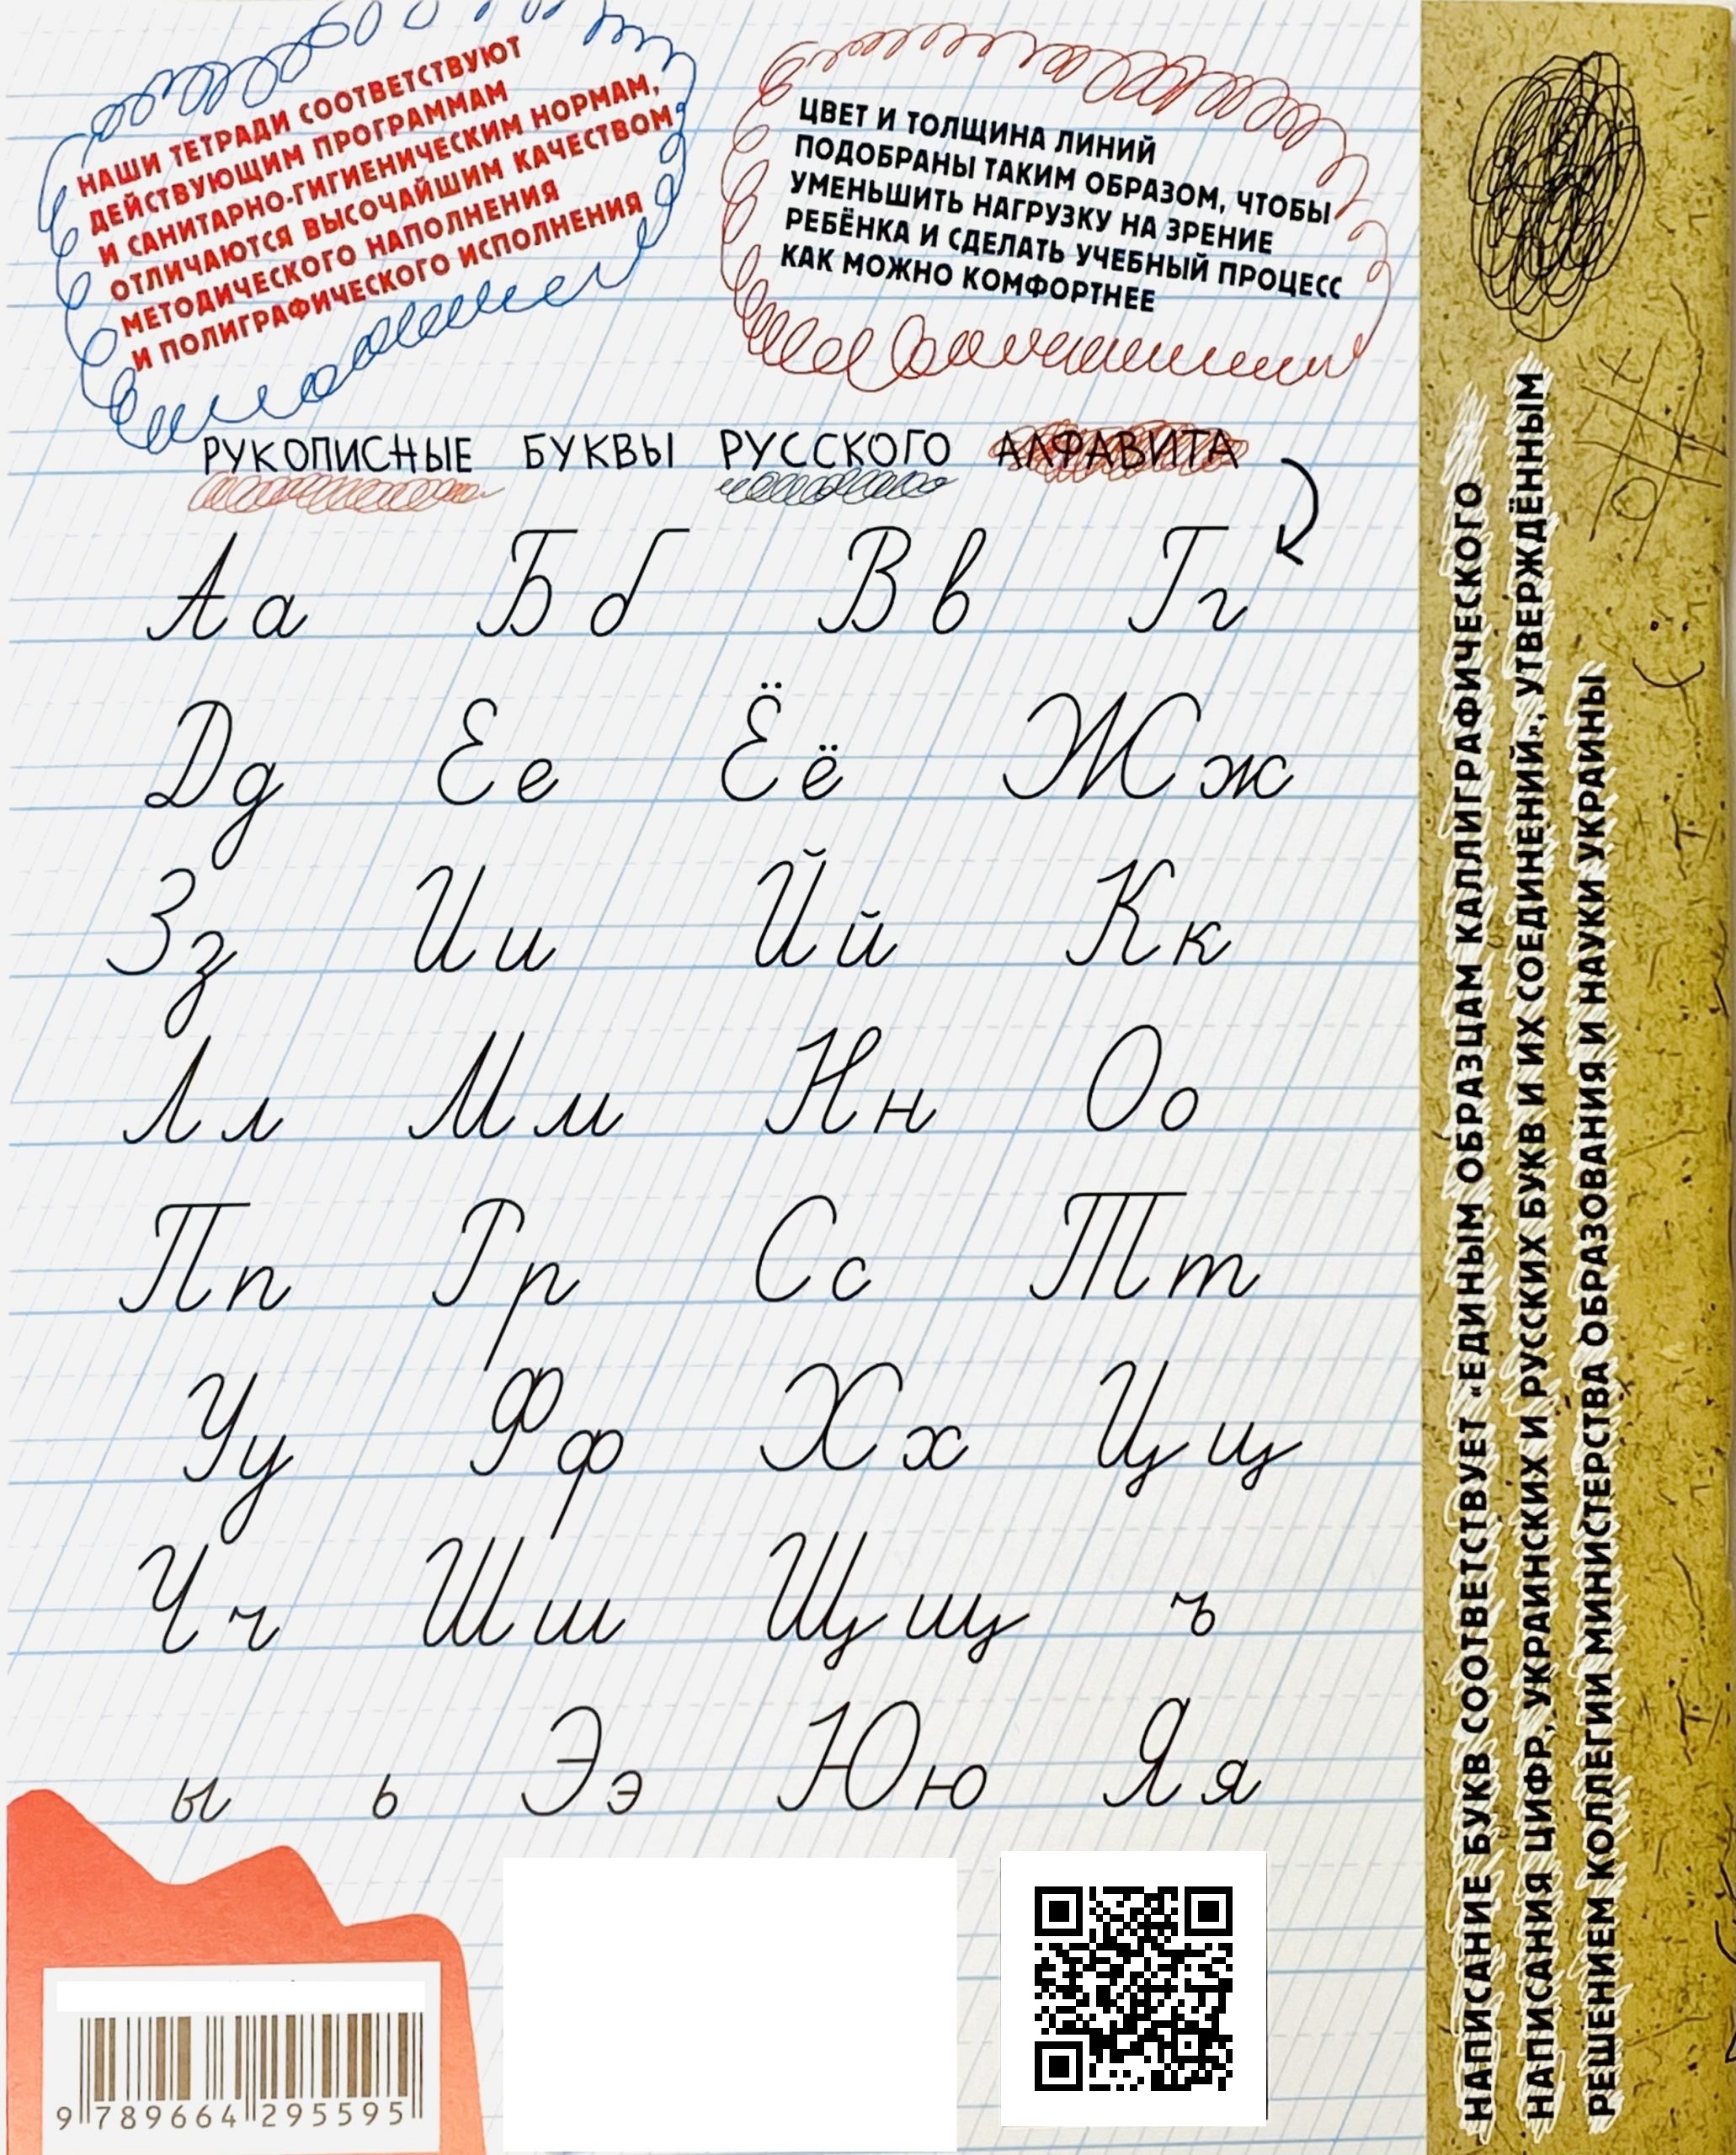 НАШИ ТЕТРАДИ СООТВЕТСТВУЮТ
ДЕЙСТВУЮЩИМ ПРОГРАММАМ
И САНИТАРНО-ГИГИЕНИЧЕСКИМ НОРМАМ,
ОТЛИЧАЮТСЯ ВЫСОЧАЙШИМ КАЧЕСТВОМ
МЕТОДИЧЕСКОГО НАПОЛНЕНИЯ
И ПОЛИГРАФИЧЕСКОГО ИСПОЛНЕНИЯ
ЦВЕТ И ТОЛЩИНА ЛИНИЙ
ПОДОБРАНЫ ТАКИМ ОБРАЗОМ, ЧТОБЫ
УМЕНЬШИТЬ НАГРУЗКУ НА ЗРЕНИЕ
РЕБЁНКА И СДЕЛАТЬ УЧЕБНЫЙ ПРОЦЕСС
КАК МОЖНО КОМФОРТНЕЕ
РУКОПИСНЫЕ БУКВЫ РУССКОГО АЛФАВИТА
Аа Бб Вв Гг
Дд Ее Ёё Жж
Зз Ии Йй Кк
Лл Мм Нн Оо
Пп Рр Сс Тт
Уу Фф Хх Цц
Чч Шш Щщ ъ
ы ь Ээ Юю Яя
9 789664 295595
НАПИСАНИЕ БУКВ СООТВЕТСТВУЕТ «ЕДИНЫМ ОБРАЗЦАМ КАЛЛИГРАФИЧЕСКОГО
НАПИСАНИЯ ЦИФР, УКРАИНСКИХ И РУССКИХ БУКВ И ИХ СОЕДИНЕНИЙ», УТВЕРЖДЁННЫМ
РЕШЕНИЕМ КОЛЛЕГИИ МИНИСТЕРСТВА ОБРАЗОВАНИЯ И НАУКИ УКРАИНЫ